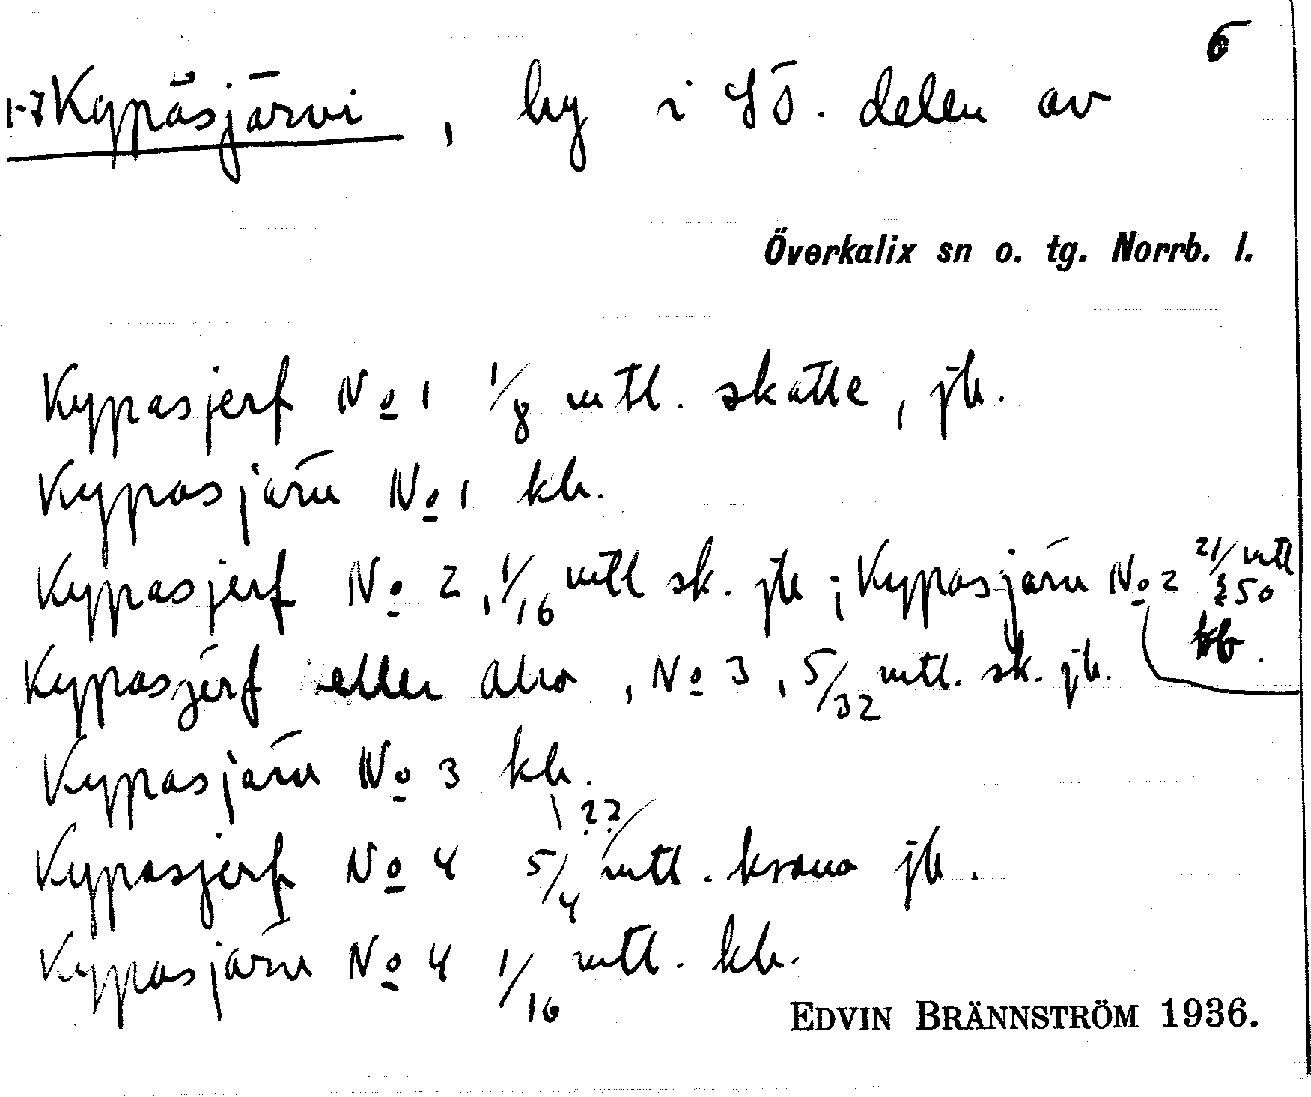 6
1-7 Kypåsjärvi, by i SÖ. delen av
Överkalix sn o. tg. Norrb. l.
Kypasjerf No 1 1/8 mtl. skatte, jb.
Kypasjärv No 1 kb.
Kypasjerf No 2, 1/16 mtl sk. jb ; Kypasjärv No 2 21/250 mtl
kb.
Kypasjerf eller Alho, No 3, 5/32 mtl. sk. jb.
Kypasjärv No 3 kb.
??
Kypasjerf No 4 5/4 mtl. krono jb.
Kypasjärv No 4 1/16 mtl. kb.
EDVIN BRÄNNSTRÖM 1936.